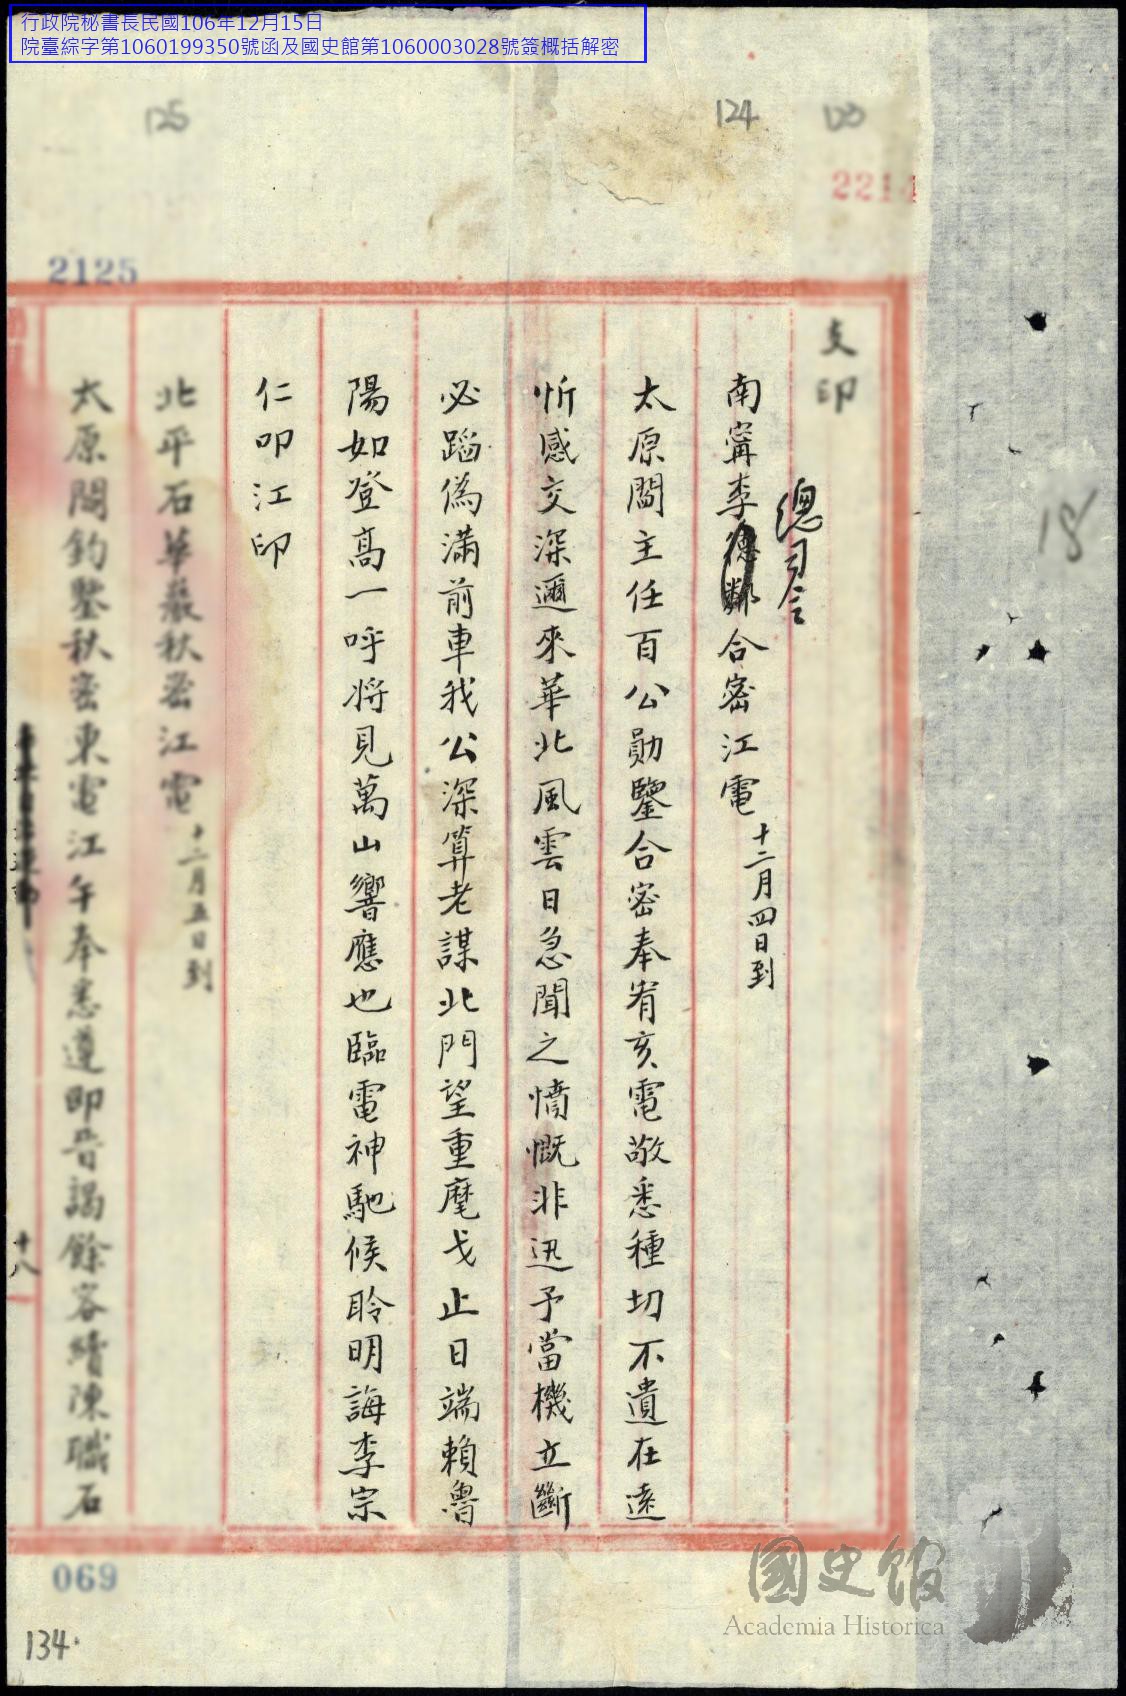 行政院秘書長民國106年12月15日
院臺綜字第1060199350號函及國史館第1060003028號簽概括解密
125
124
2214
2125
支印
總司令
南寗李德鄰合密江電 十二月四日到
太原閻主任百公勛鑒合密奉宥亥電敬悉種切不遺在遠
忻感交深邇來華北風雲日急聞之憤慨非迅予當機立斷
必蹈偽滿前車我公深算老謀北門望重麾戈止日端賴魯
陽如登高一呼將見萬山響應也臨電神馳候聆明誨李宗
仁叩江印
北平石華嚴秋密江電 十二月五日到
太原閻鈞鑒秋密東電江午奉悉遵即晉謁餘容續陳職石
十八
18
069
134.
國史館
Academia Historica